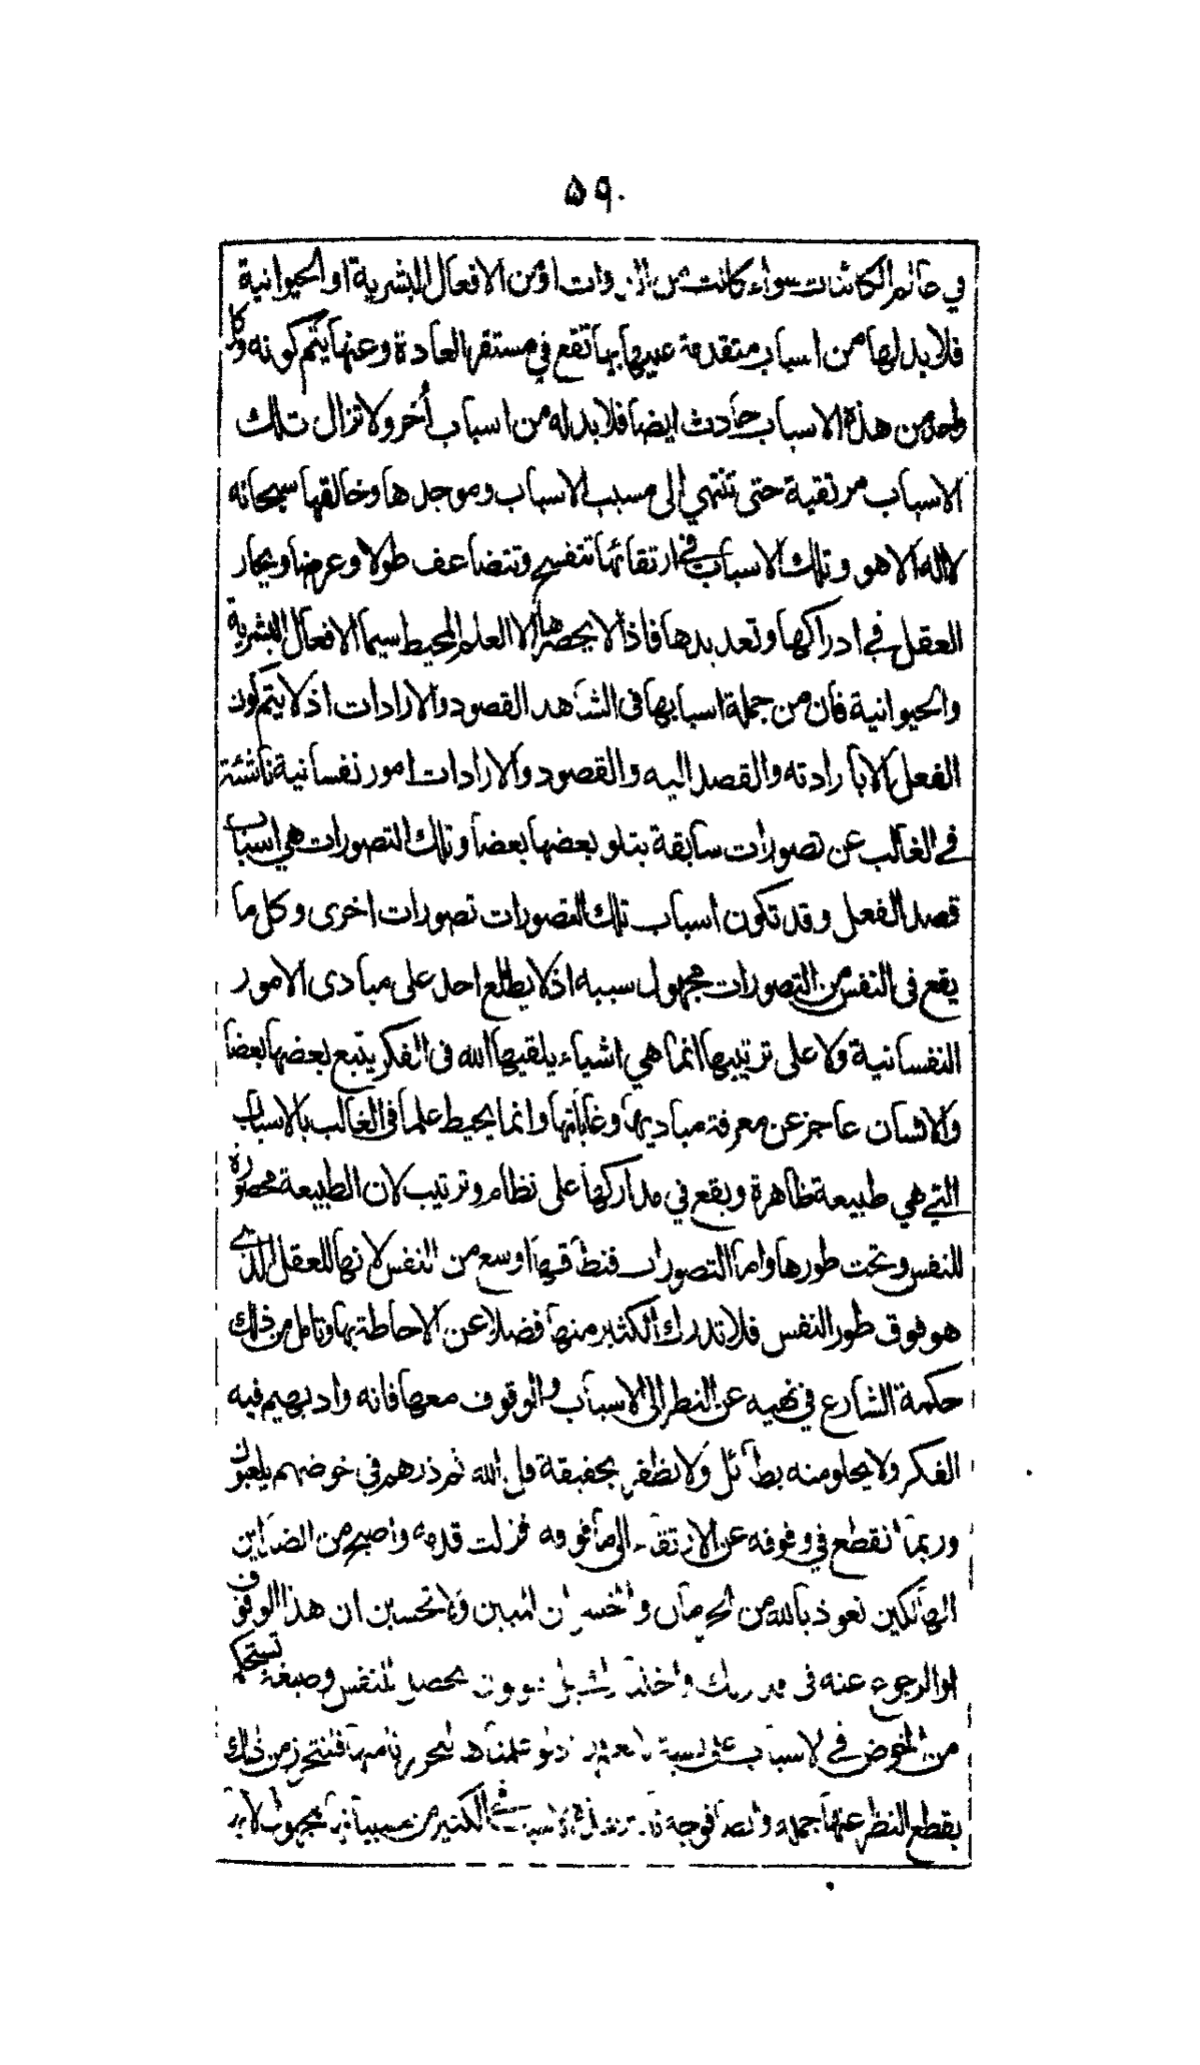 ٥٩٠
في عالم الكائنات سواء كانت من الذوات او من الافعال البشرية او الحيوانية
فلا بد لها من اسباب متقدمة عليها بها تقع في مستقر العادة وعنها يتم كونه وكل
واحد من هذه الاسباب حادث ايضا فلا بد له من اسباب أخر ولا تزال تلك
الاسباب مرتقية حتى تنتهي إلى مسبب الاسباب وموجدها وخالقها سبحانه
لا اله الا هو وتلك الاسباب في ارتقائها تتفسح وتتضاعف طولا وعرضا ويحار
العقل في ادراكها وتعديدها فاذا لا يحصرها الا العلم المحيط سيما الافعال البشرية
والحيوانية فان من جملة اسبابها في الشاهد القصود والارادات اذ لا يتم كون
الفعل الا بارادته والقصد اليه والقصود والارادات امور نفسانية ناشئة
في الغالب عن تصورات سابقة يتلو بعضها بعضا وتلك التصورات هي اسباب
قصد الفعل وقد تكون اسباب تلك التصورات تصورات اخرى وكل ما
يقع في النفس من التصورات مجهول سببه اذ لا يطلع احد على مبادى الامور
النفسانية ولا على ترتيبها انما هي اشياء يلقيها الله في الفكر يتبع بعضها بعضا
والانسان عاجز عن معرفة مباديها وغاياتها وانما يحيط علما في الغالب بالاسباب
التي هي طبيعة ظاهرة ويقع في مداركها على نظام وترتيب لان الطبيعة محصورة
للنفس وتحت طورها واما التصورات فنطاقها اوسع من النفس لانها للعقل الذي
هو فوق طور النفس فلا تدرك الكثير منها فضلا عن الاحاطة بها وتامل من ذلك
حكمة الشارع في نهيه عن النظر الى الاسباب والوقوف معها فانه واد يهيم فيه
الفكر ولا يحلو منه بطائل ولا يظفر بحقيقة قل الله ثم ذرهم في خوضهم يلعبون
وربما انقطع في وقوفه عن الارتقاء الى ما فوقه فزلت قدمه واصبح من الضالين
الهالكين نعوذ بالله من الحرمان والخسران المبين ولا تحسبن ان هذا الوقوف
او الرجوع عنه في يحصل للنفس وصبغة تستحكم
من الخوض في الاسباب على نسبة لا نعلمها اذ لو علمناها لتحررنا منها فلنتحرز من ذلك
بقطع النظر عنها جملة وايضا فوجه الاسباب في الكثير من مسبباتها مجهول لانه